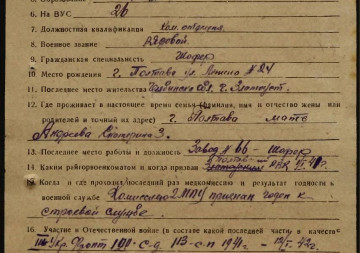 6. На ВУС 26
7. Должностная квалификация
8. Военное звание рядовой.
9. Гражданская специальность Шофер
10 Место рождения г. Полтава ул Ленина № 24
11. Последнее место жительства г. Златоуст.
12. Где проживает в настоящее время семья (фамилия, имя и отчество жены или
родителей и точный их адрес) г. Полтава мать
Андреева З.
13. Последнее место работы и должность Завод № 66 – шофер
14 Каким райгорвоенкоматом и когда призван
15. Когда и где проходил последний раз медкомиссию и результат годности к
военной службе признан годен к
строевой службе.
16. Участие в Отечественной войне (в составе какой последней части, в качестве
Укр. Фронт 100 с-д